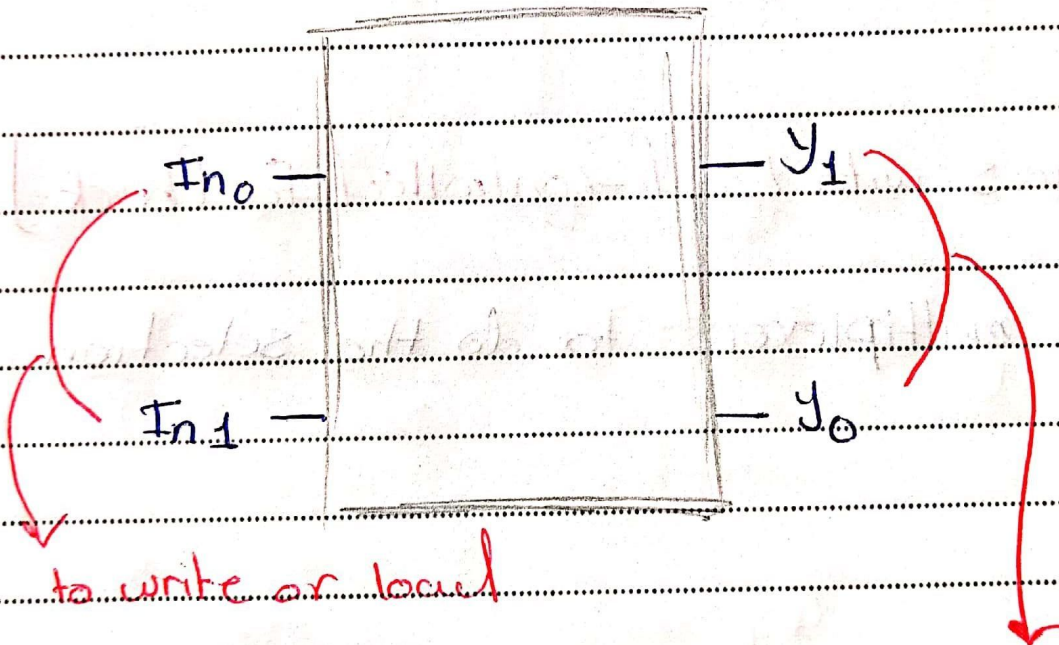 In0 Y1
In1 Y0
to write or load